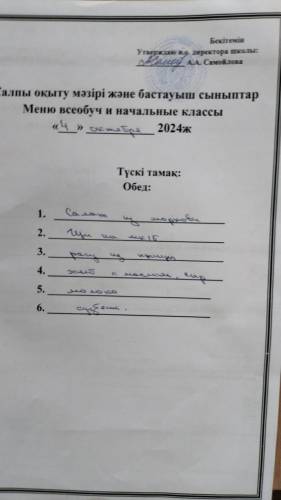 Бекітемін
Утверждаю и.о. директора школы:
А.А. Самойлова
Жалпы оқыту мәзірі және бастауыш сыныптар
Меню всеобуч и начальные классы
«4» октября 2024ж
Түскі тамақ:
Обед:
1. Салат из моркови
2. Щи на
3. рагу из
4. хлеб с маслом, сыр
5. молоко
6.